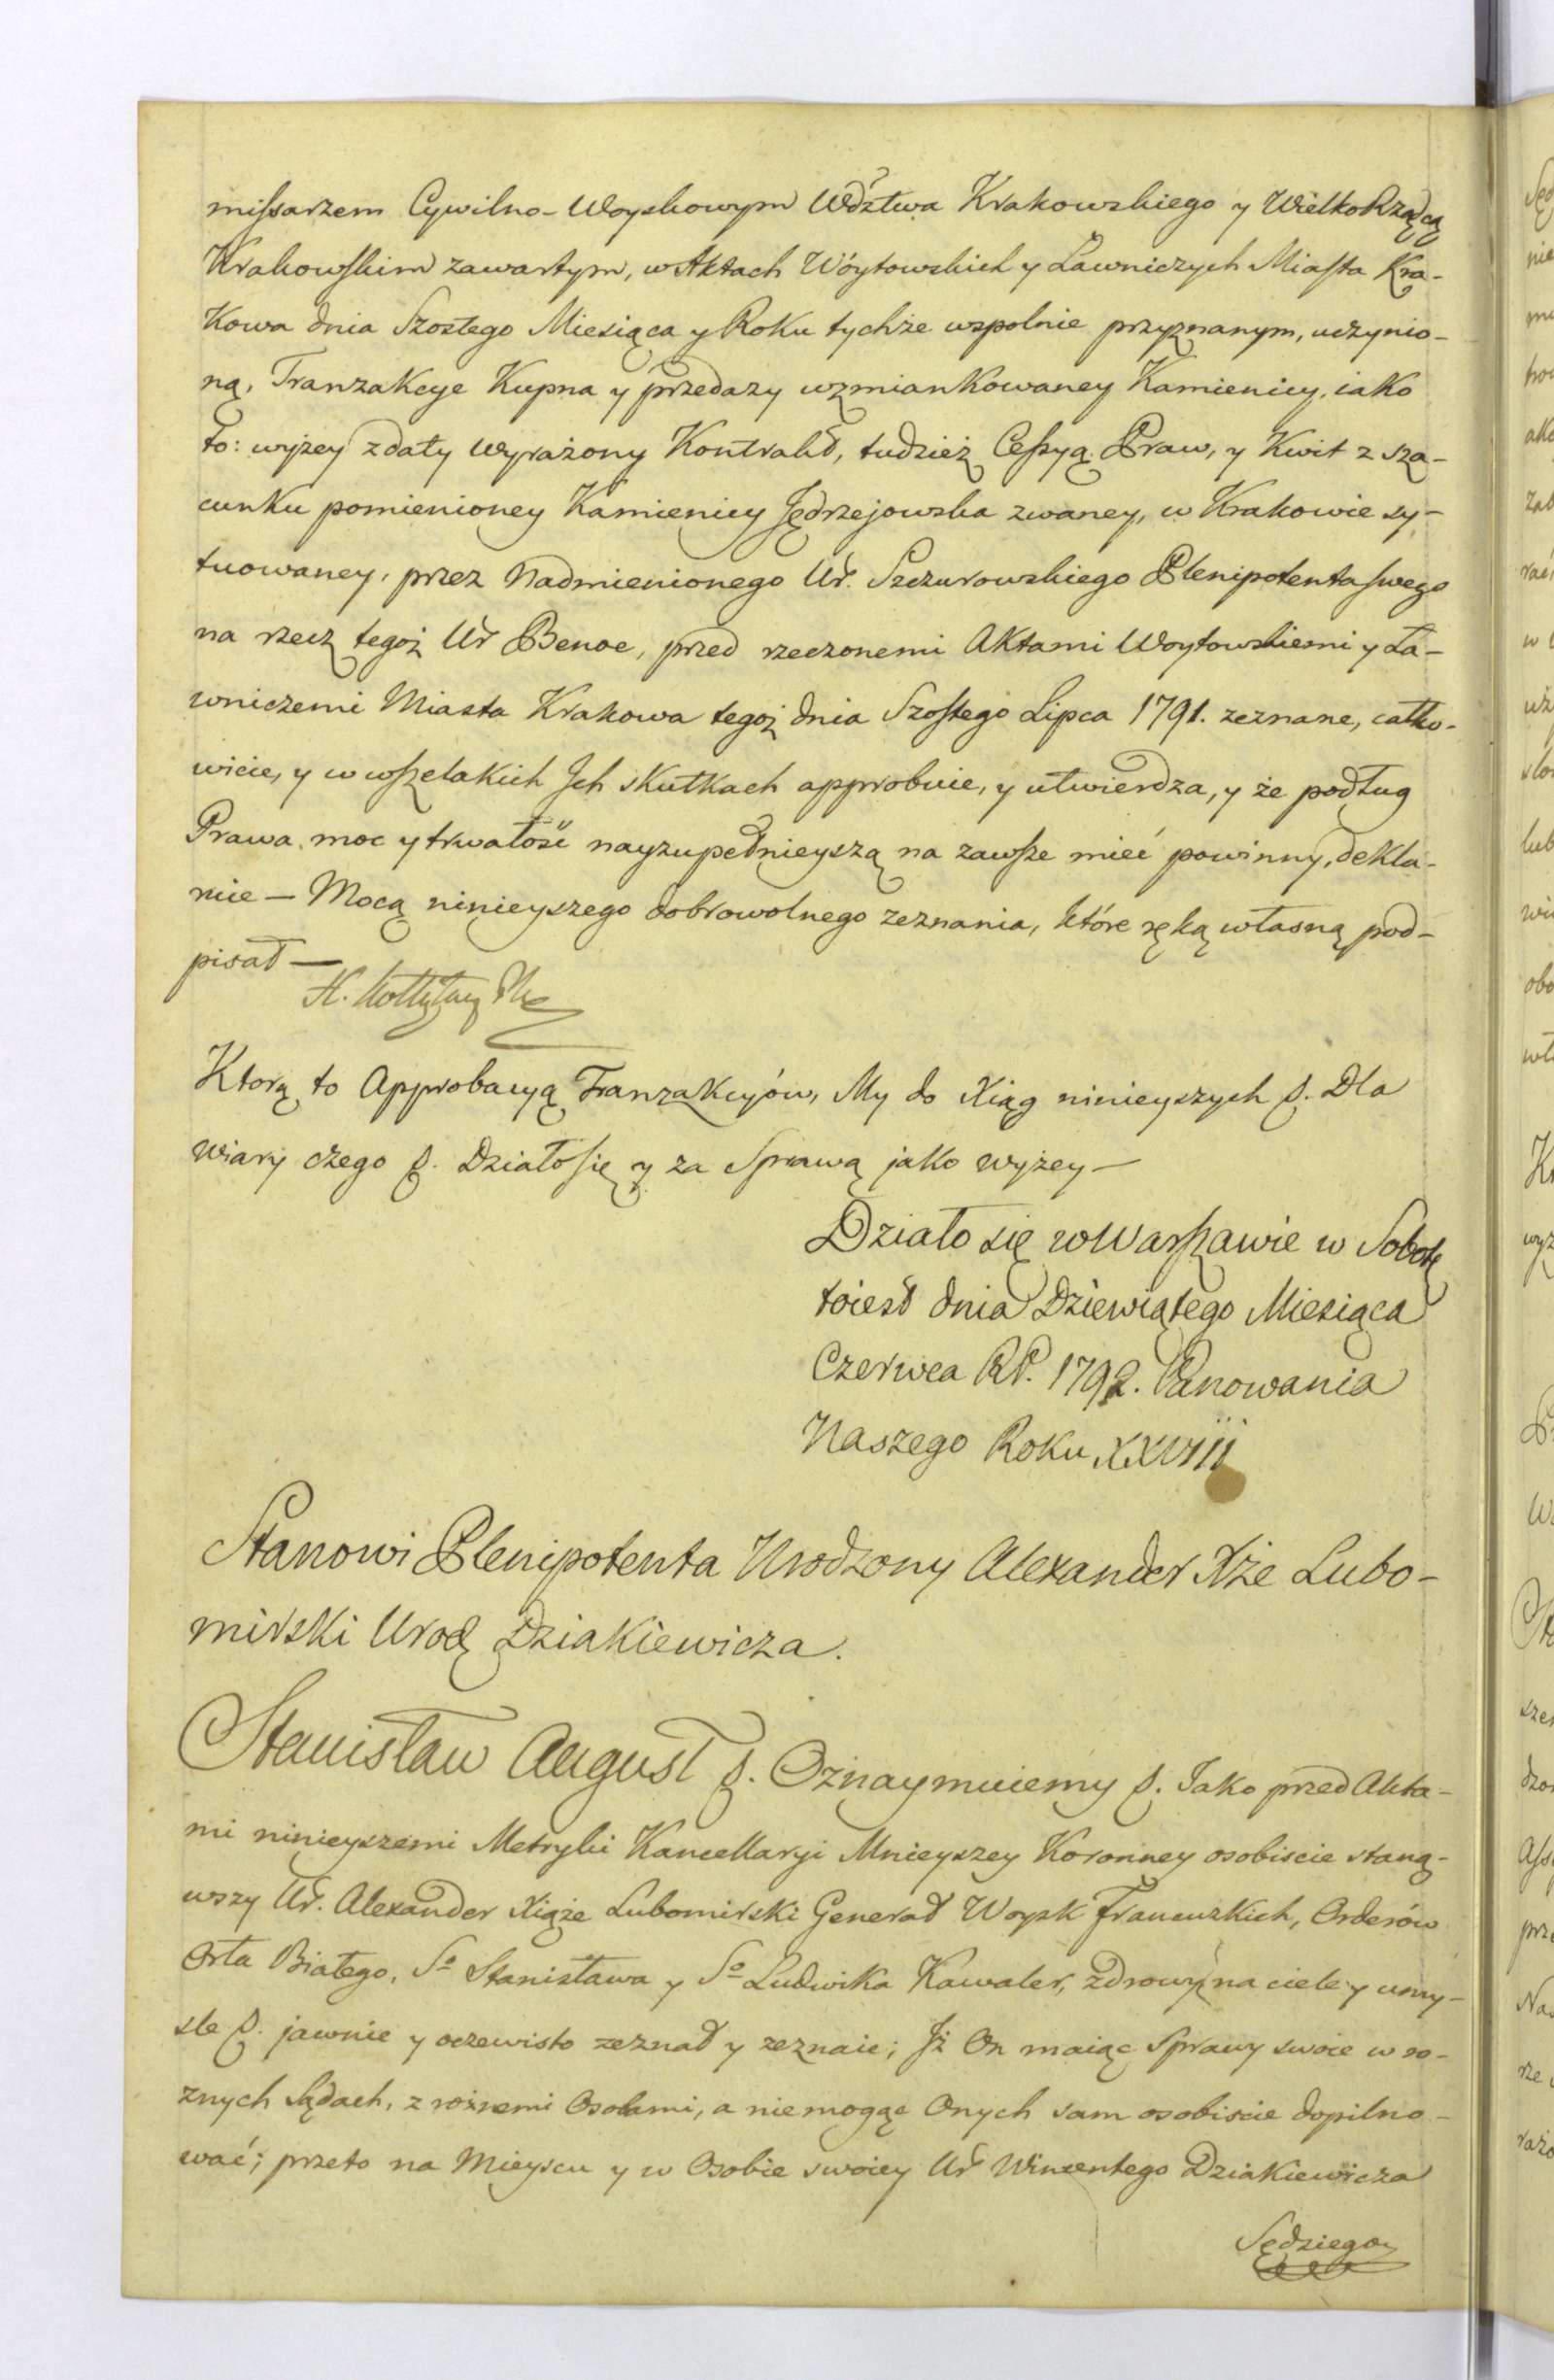 missarzem Cywilno-Woyskowym Wdztwa Krakowskiego y WielkoRządcą
Krakowskim zawartym, w Aktach Wóytowskich y Ławniczych Miasta Kra-
kowa dnia Szostego Miesiąca y Roku tychże wspolnie przyznanym, uczynio-
ną, Tranzakcye Kupna y przedazy wzmiankowaney Kamienicy, iako
to: wyżey z daty wyrażony Kontrakt, tudzież Cessyą Praw, y Kwit z sza-
cunku pomienioney Kamienicy Jędrzejowska zwaney, w Krakowie sy-
tuowaney, przez Nadmienionego Ur. Szczurowskiego Plenipotenta swego
na rzecz tegoż Ur Benoe, przed rzeczonemi Aktami Woytowskiemi y Ła-
wniczemi Miasta Krakowa tegoż dnia Szostego Lipca 1791. zeznane, całko-
wicie, y w wszelakich Jch skutkach approbuie, y utwierdza, y że podług
Prawa moc y trwałość nayzupełnieyszą na zawsze mieć powinny, dekla-
ruie — Mocą ninieyszego dobrowolnego zeznania, które ręką własną pod-
pisał —
H. Kołłątay
Ktorą to Approbacyą Tranzakcyów, My do Xiąg ninieyszych p. Dla
wiary czego p. Działo się y za Sprawą jako wyżey —
Działo się w Warszawie w Sobotę
toiest dnia Dziewiątego Miesiąca
Czerwca RP. 1792. Panowania
Naszego Roku XXVIII
Stanowi Plenipotenta Urodzony Alexander Xże Lubo-
mirski Urod Dziakiewicza.
Stanisław August p. Oznaymuiemy p. Jako przed Akta-
mi ninieyszemi Metryki Kancellaryi Mnieyszey Koronney osobiscie staną-
wszy Ur. Alexander Xiąże Lubomirski Generał Woysk francuzkich, Orderów
Orła Białego, So Stanisława y So Ludwika Kawaler, zdrowy na ciele y umy-
sle p. jawnie y oczewisto zeznał y zeznaie; Jż On maiąc Sprawy swoie w ro-
znych Sądach, z rożnemi Osobami, a niemogąc Onych sam osobiscie dopilno-
wać; przeto na Mieyscu y w Osobie swoiey Ur Wincentego Dziakiewicza
Sędziego